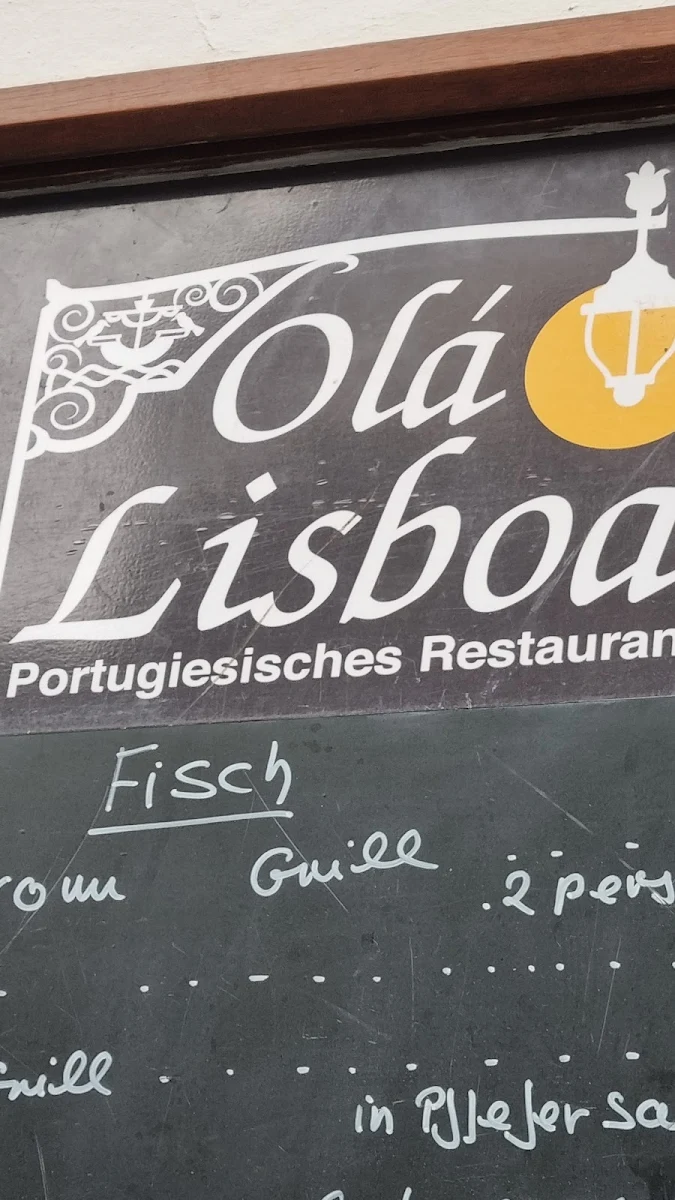 Olá
Lisboa
Portugiesisches Restauran
Fisch
vom Grill 2 pers
Grill
in Pfeffer sa